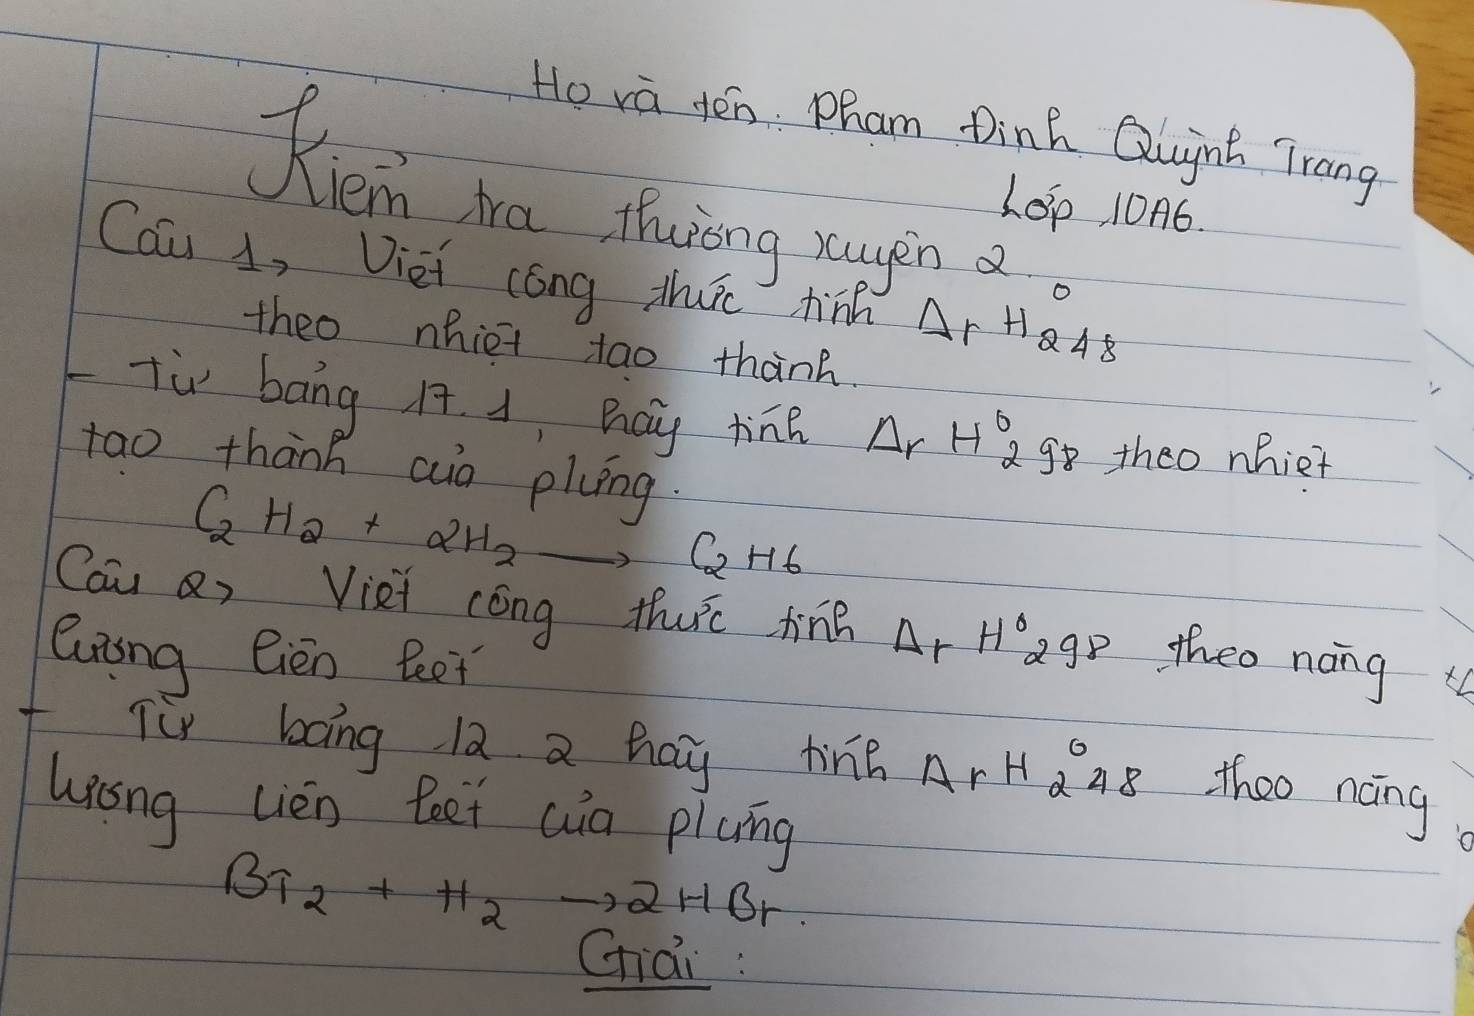 Họ và tên: Phạm Đinh Quỳnh Trang
Lớp 10A6.
Kiểm tra thường xuyên 2.
Câu 1, Viết công thức tính ΔrH⁰248
theo nhiệt tạo thành.
- Từ bảng 17.1, hãy tính ΔrH⁰298 theo nhiệt
tạo thành của p/ứng.
C2H2 + 2H2 → C2H6
Câu 2, Viết công thức tính ΔrH⁰298 theo năng
lượng liên kết
- Từ bảng 12.2 hãy tính ΔrH⁰248 theo năng
lượng liên kết của p/ứng
Br2 + H2 → 2HBr.
Giải: